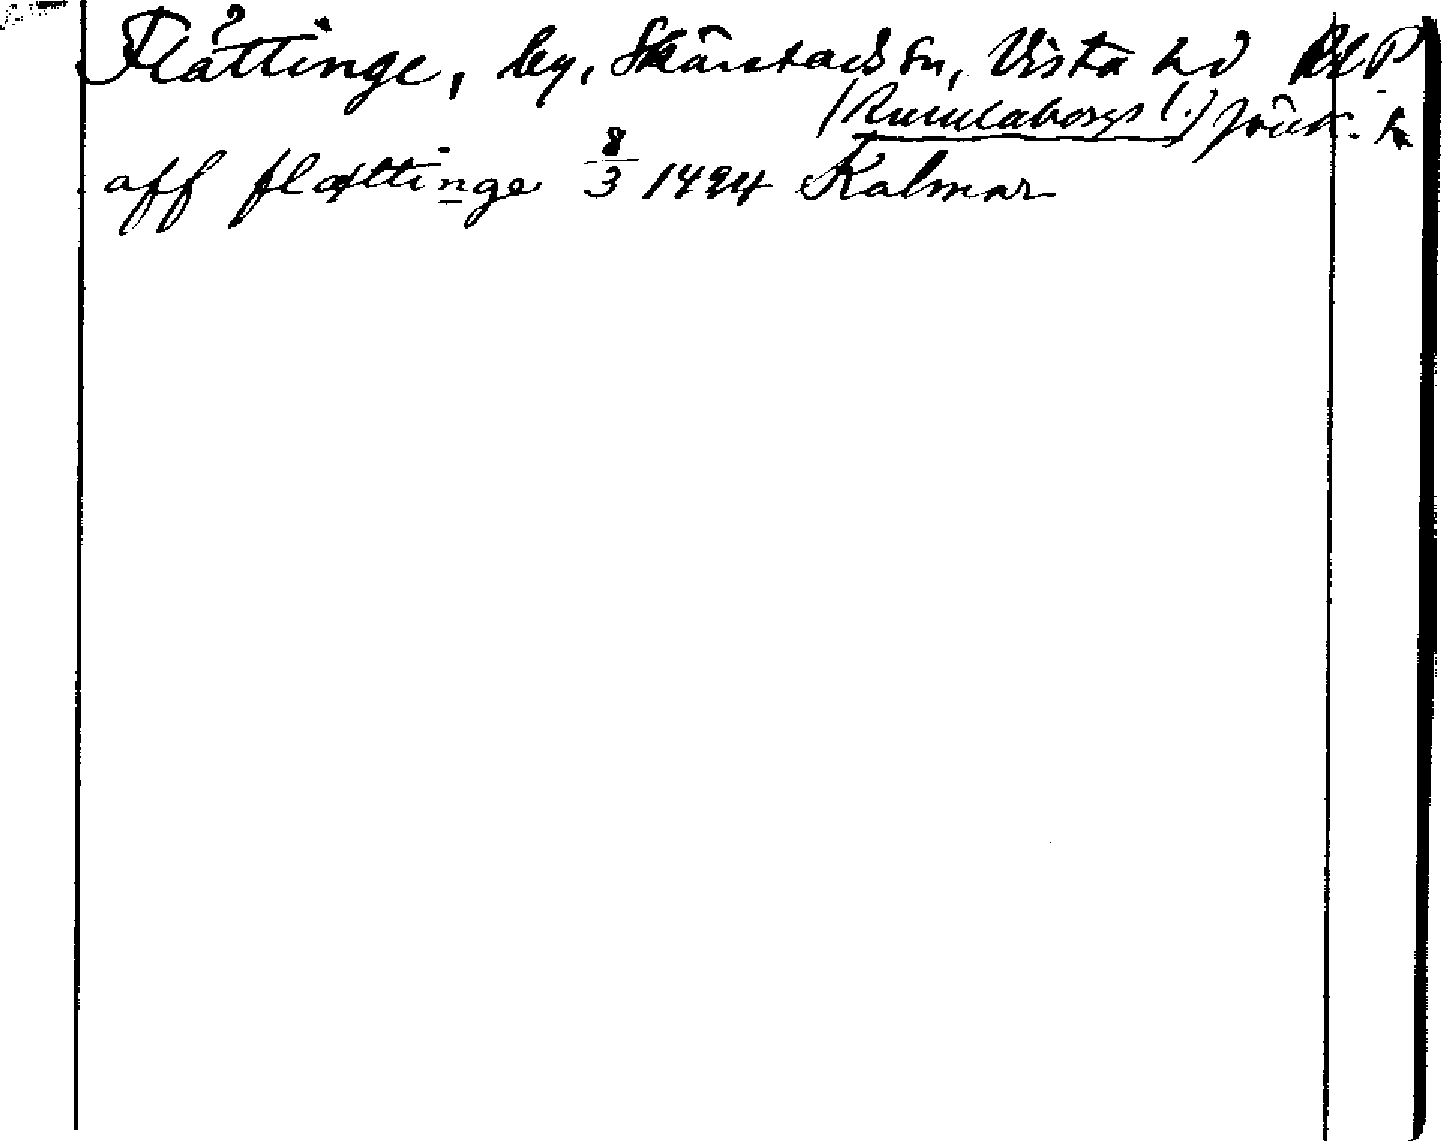 Flättinge, by, Skärstads sn, Vista hd RAP
(Rumlaborgs l.) Jönk. l.
aff flættinge 8/3 1494 Kalmar